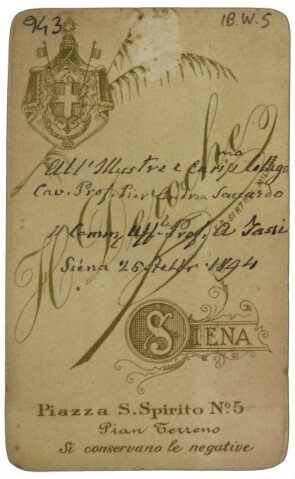 943
IB.W.S
All'Illustre e Cariss.mo Collega
Cav. Prof. Pier Andrea Saccardo
Il Comm. Uff.le Prof. A. Tassi
Siéna 25 Febbr. 1894
SIENA
Piazza S. Spirito Nº5
Pian Terreno
Si conservano le negative